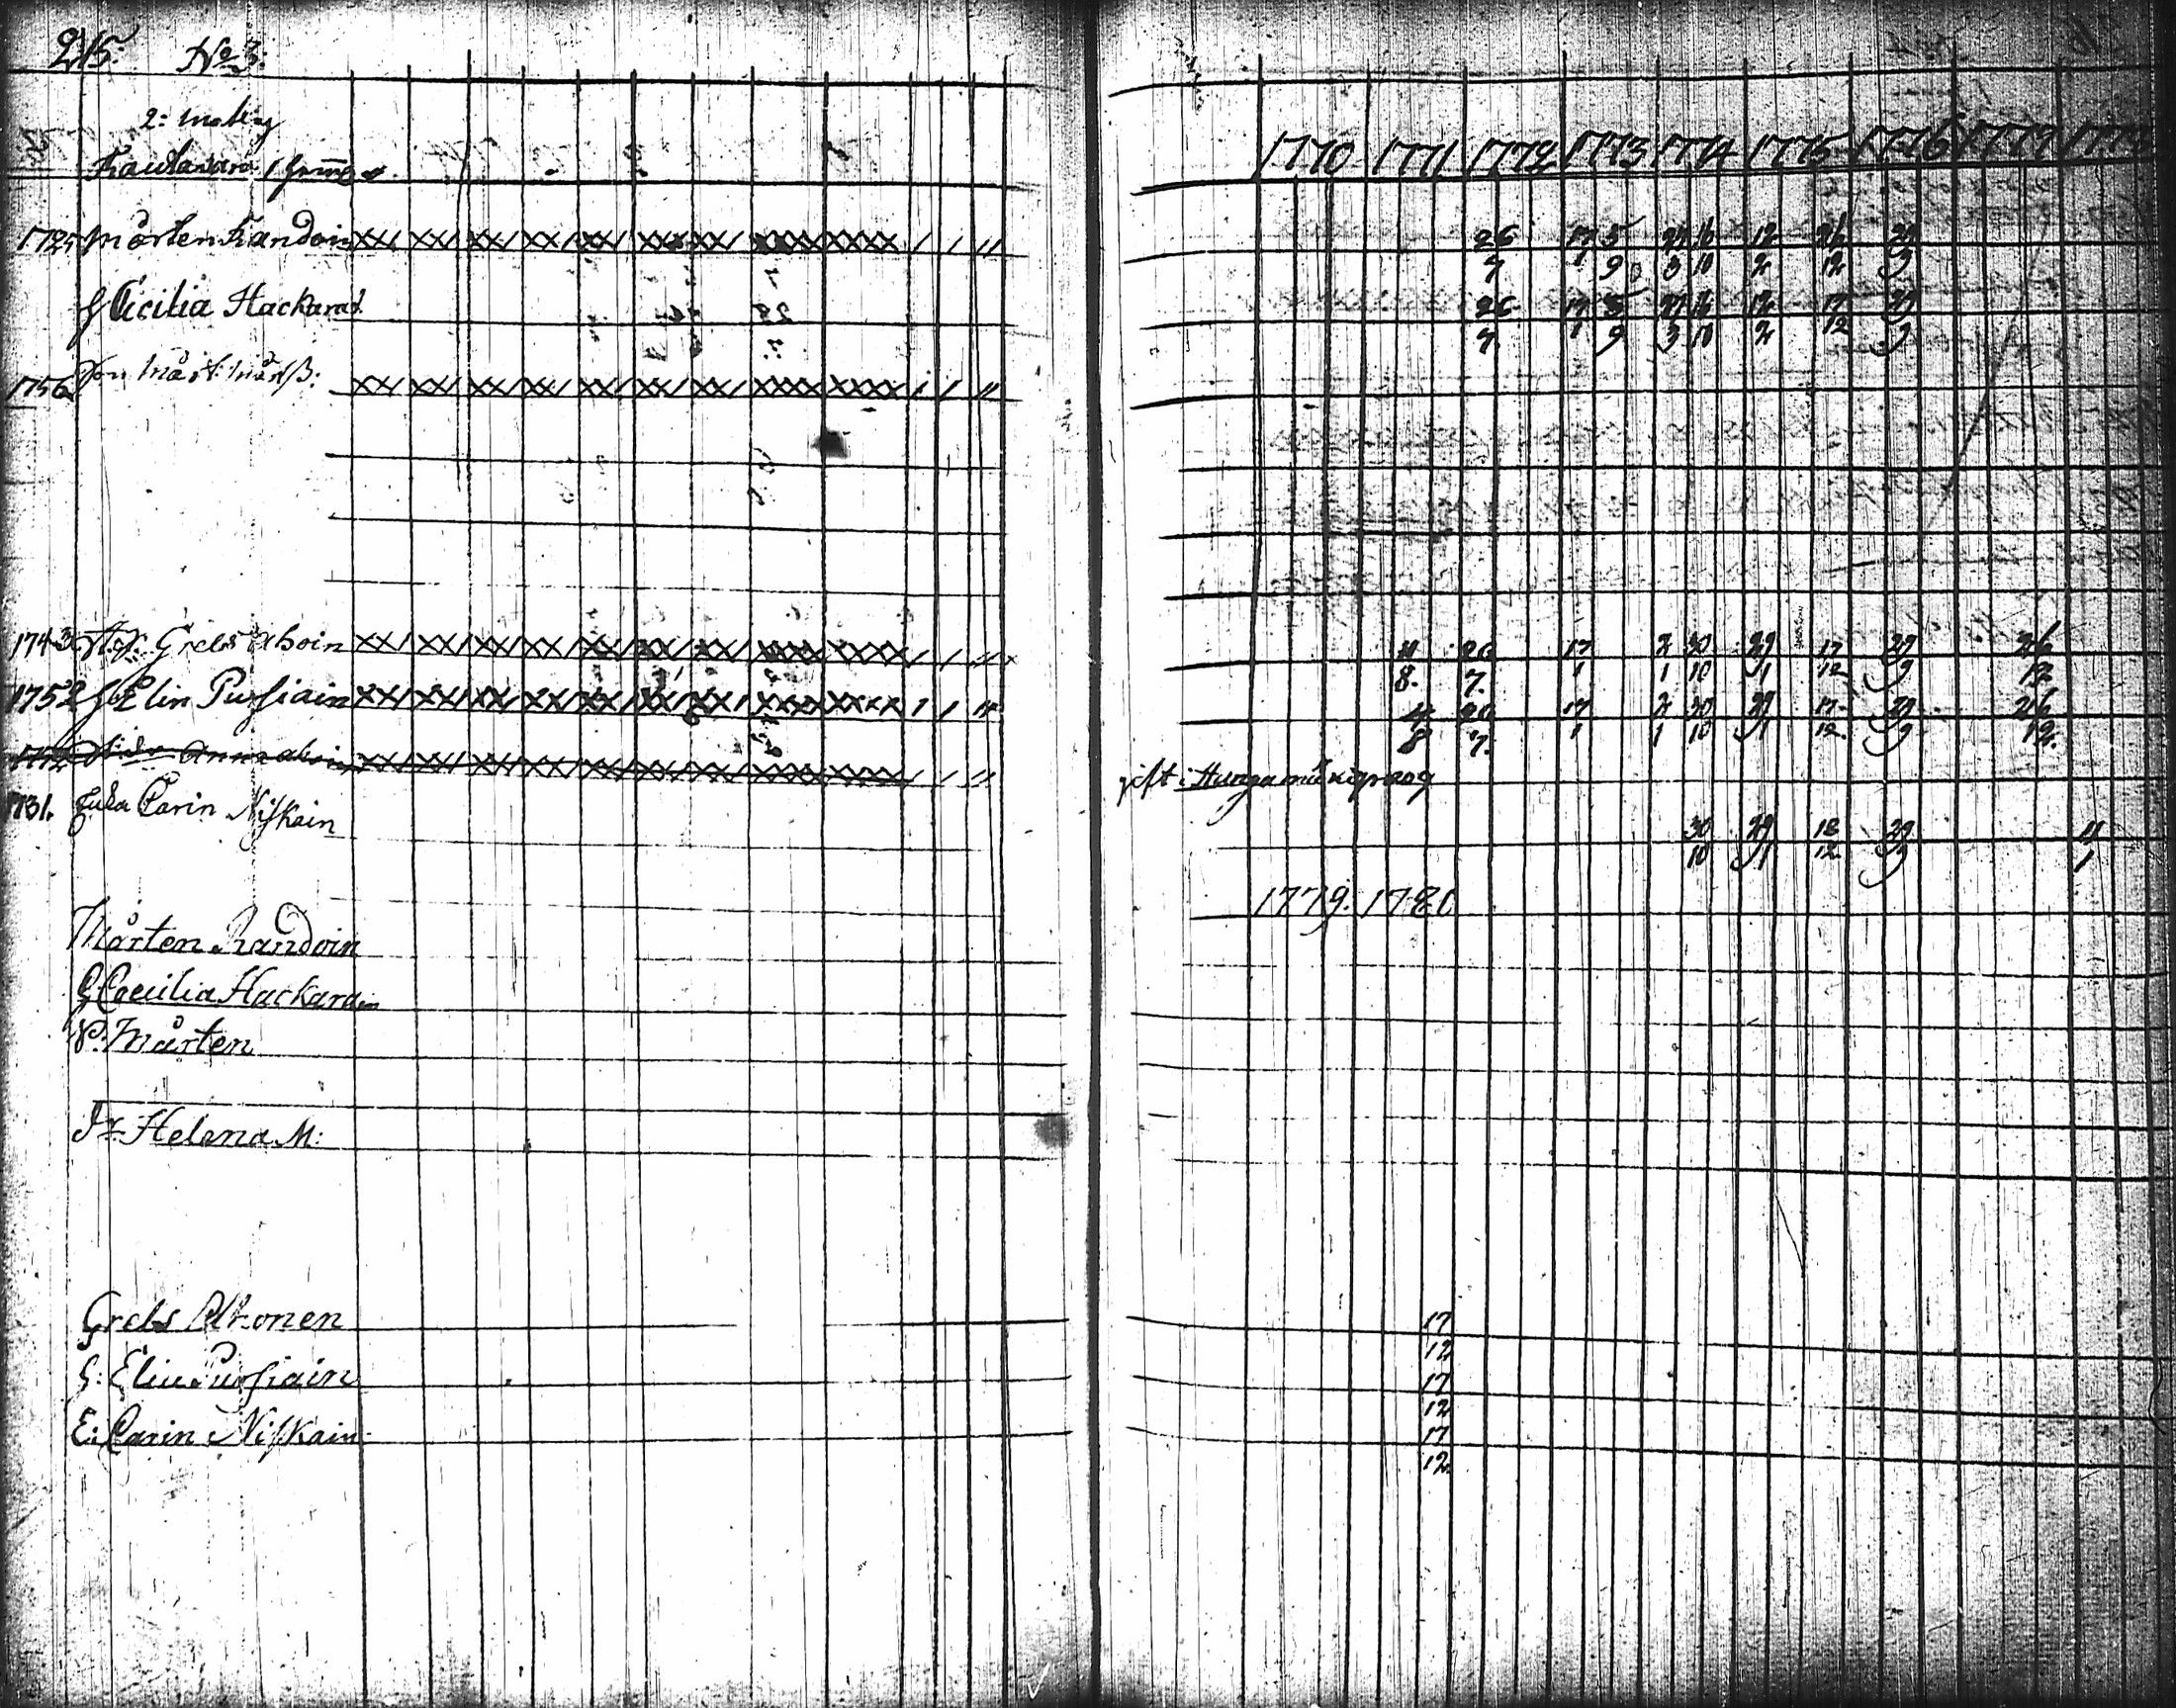 215. No 3.
2: mantal
1725 Mårten Randoin XX/ XX/ XX/ XX/ XX/ XX/ XX/ XXXX XXXX / / 11
G Cicilia Hackarad
1756 Son Mårt: Mårtß: XX/ XX/ XX/ XX/ XX/ XX/ XX/ XXXX XXXX / / 11
1743 Grels Ahoin XX/ XX/ XX/ XX/ XX/ XX/ XX/ XXXX XXXX / / 11
1752 H Elin Pursiain XX/ XX/ XX/ XX/ XX/ XX/ XX/ XXXX XXXX / / 11
Anna Ahoin XX/ XX/ XX/ XX/ XX/ XX/ XX/ XXXX XXXX / / 11
1731. Enka Carin Niskain
Mårten Randoin
G Caecilia Hackarain
S: Mårten
Dr Helena M:
Grels Ahonen
H: Elin Pursiain
E: Carin Niskain
1770 1771 1772 1773 1774 1775 1776 1777 1778
26 17 5 27 16 12 26 29
7 1 9 3 10 2 12 9
26 17 5 27 16 12 17 29
7 1 9 3 10 2 12 9
4 26 17 2 30 29 17 29 26
8. 7. 1 1 10 1 12 9 12
4 26 17 2 30 29 17 29 26
8 7. 1 1 10 1 12 9 12.
gift i
30 29 18 29 11
10 1 12 9 1
1779. 1780
17
12
17
12
17
12